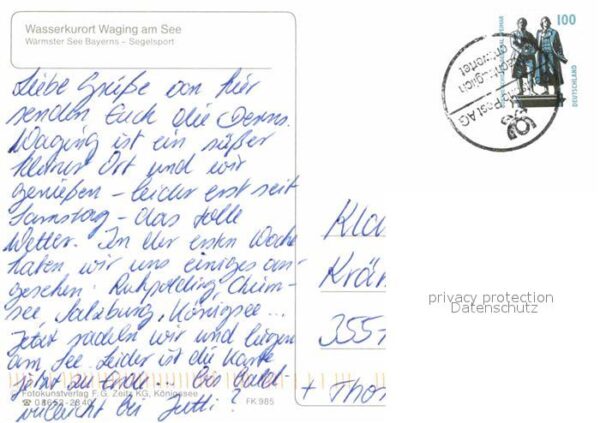 Wasserkurort Waging am See
Wärmster See Bayerns – Segelsport
Liebe Grüße von hier
senden Euch die
Waging ist ein süßer
kleiner Ort und wir
genießen – leider erst seit
Samstag – das tolle
Wetter. In der ersten Woche
haben wir uns einiges an-
gesehen: Ruhpolding, Chiem-
see, Salzburg, Königsee...
Jetzt radeln wir und liegen
am See. Leider ist die Karte
jetzt zu Ende ... Bis bald
vielleicht bei Jutti?
Fotokunstverlag F. G. Zeitz KG, Königssee
☎ 0 86 52 - 28 40
FK 985
100
DEUTSCHLAND
nachträglich
entwertet
Post AG
Kla
Krä
355
+ Tho
privacy protection
Datenschutz